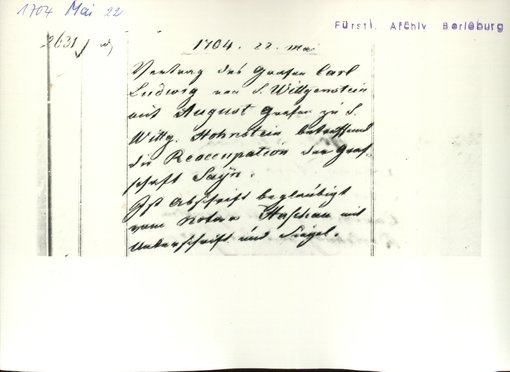 1704 Mai 22
Fürstl. Archiv Berleburg
2631
1704. 22. Mai
Vertrag des Grafen Carl
Ludwig von S. Wittgenstein
mit August Grafen zu S.
Wittg. Hohnstein betreffend
die Reoccupation der Graf-
schaft Sayn.
Ist Abschrift beglaubigt
vom Notar mit
Unterschrift und Siegel.